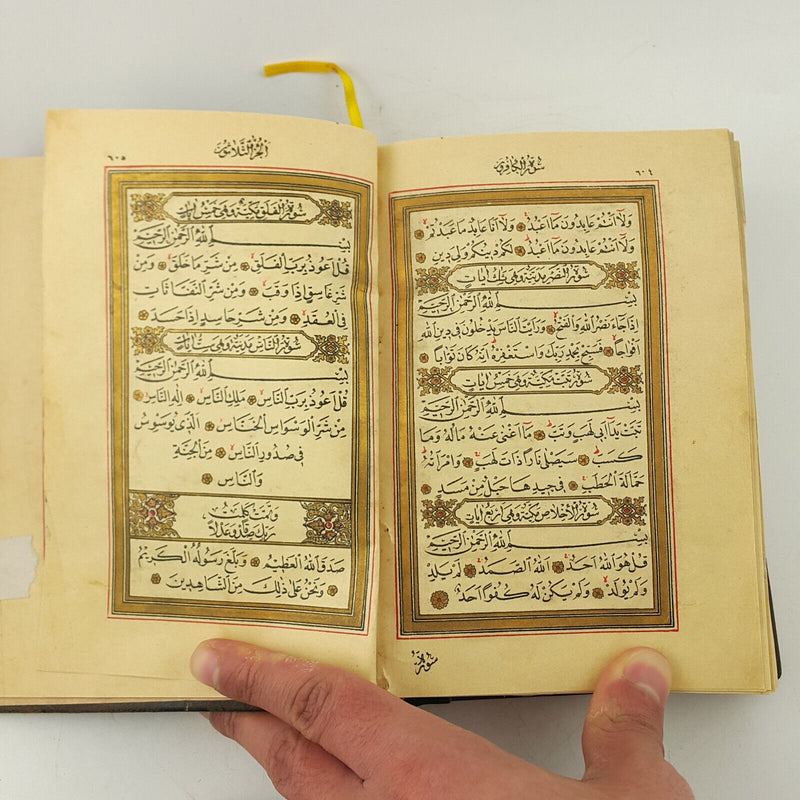 ٦٠٤
سورة الكافرون
ولا انتم عابدون ما اعبد ولا انا عابد ما عبدتم
ولا انتم عابدون ما اعبد لكم دينكم ولى دين
سورة النصر مدنية وهى ثلث ايات
بسم الله الرحمن الرحيم
اذا جاء نصر الله والفتح ورايت الناس يدخلون فى دين الله
افواجا فسبح بحمد ربك واستغفره انه كان توابا
سورة تبت مكية وهى خمس ايات
بسم الله الرحمن الرحيم
تبت يدا ابى لهب وتب ما اغنى عنه ماله وما
كسب سيصلى نارا ذات لهب وامراته
حمالة الحطب فى جيدها حبل من مسد
سورة الاخلاص مكية وهى اربع ايات
بسم الله الرحمن الرحيم
قل هو الله احد الله الصمد لم يلد
ولم يولد ولم يكن له كفوا احد
سورة
الجزء الثلاثون
٦٠٥
سورة الفلق مكية وهى خمس ايات
بسم الله الرحمن الرحيم
قل اعوذ برب الفلق من شر ما خلق ومن
شر غاسق اذا وقب ومن شر النفاثات
فى العقد ومن شر حاسد اذا حسد
سورة الناس مدنية وهى ست ايات
بسم الله الرحمن الرحيم
قل اعوذ برب الناس ملك الناس اله الناس
من شر الوسواس الخناس الذى يوسوس
فى صدور الناس من الجنة
والناس
وتمت كلمت
ربك صدقا وعدلا
صدق الله العظيم وبلغ رسوله الكريم
ونحن على ذلك من الشاهدين